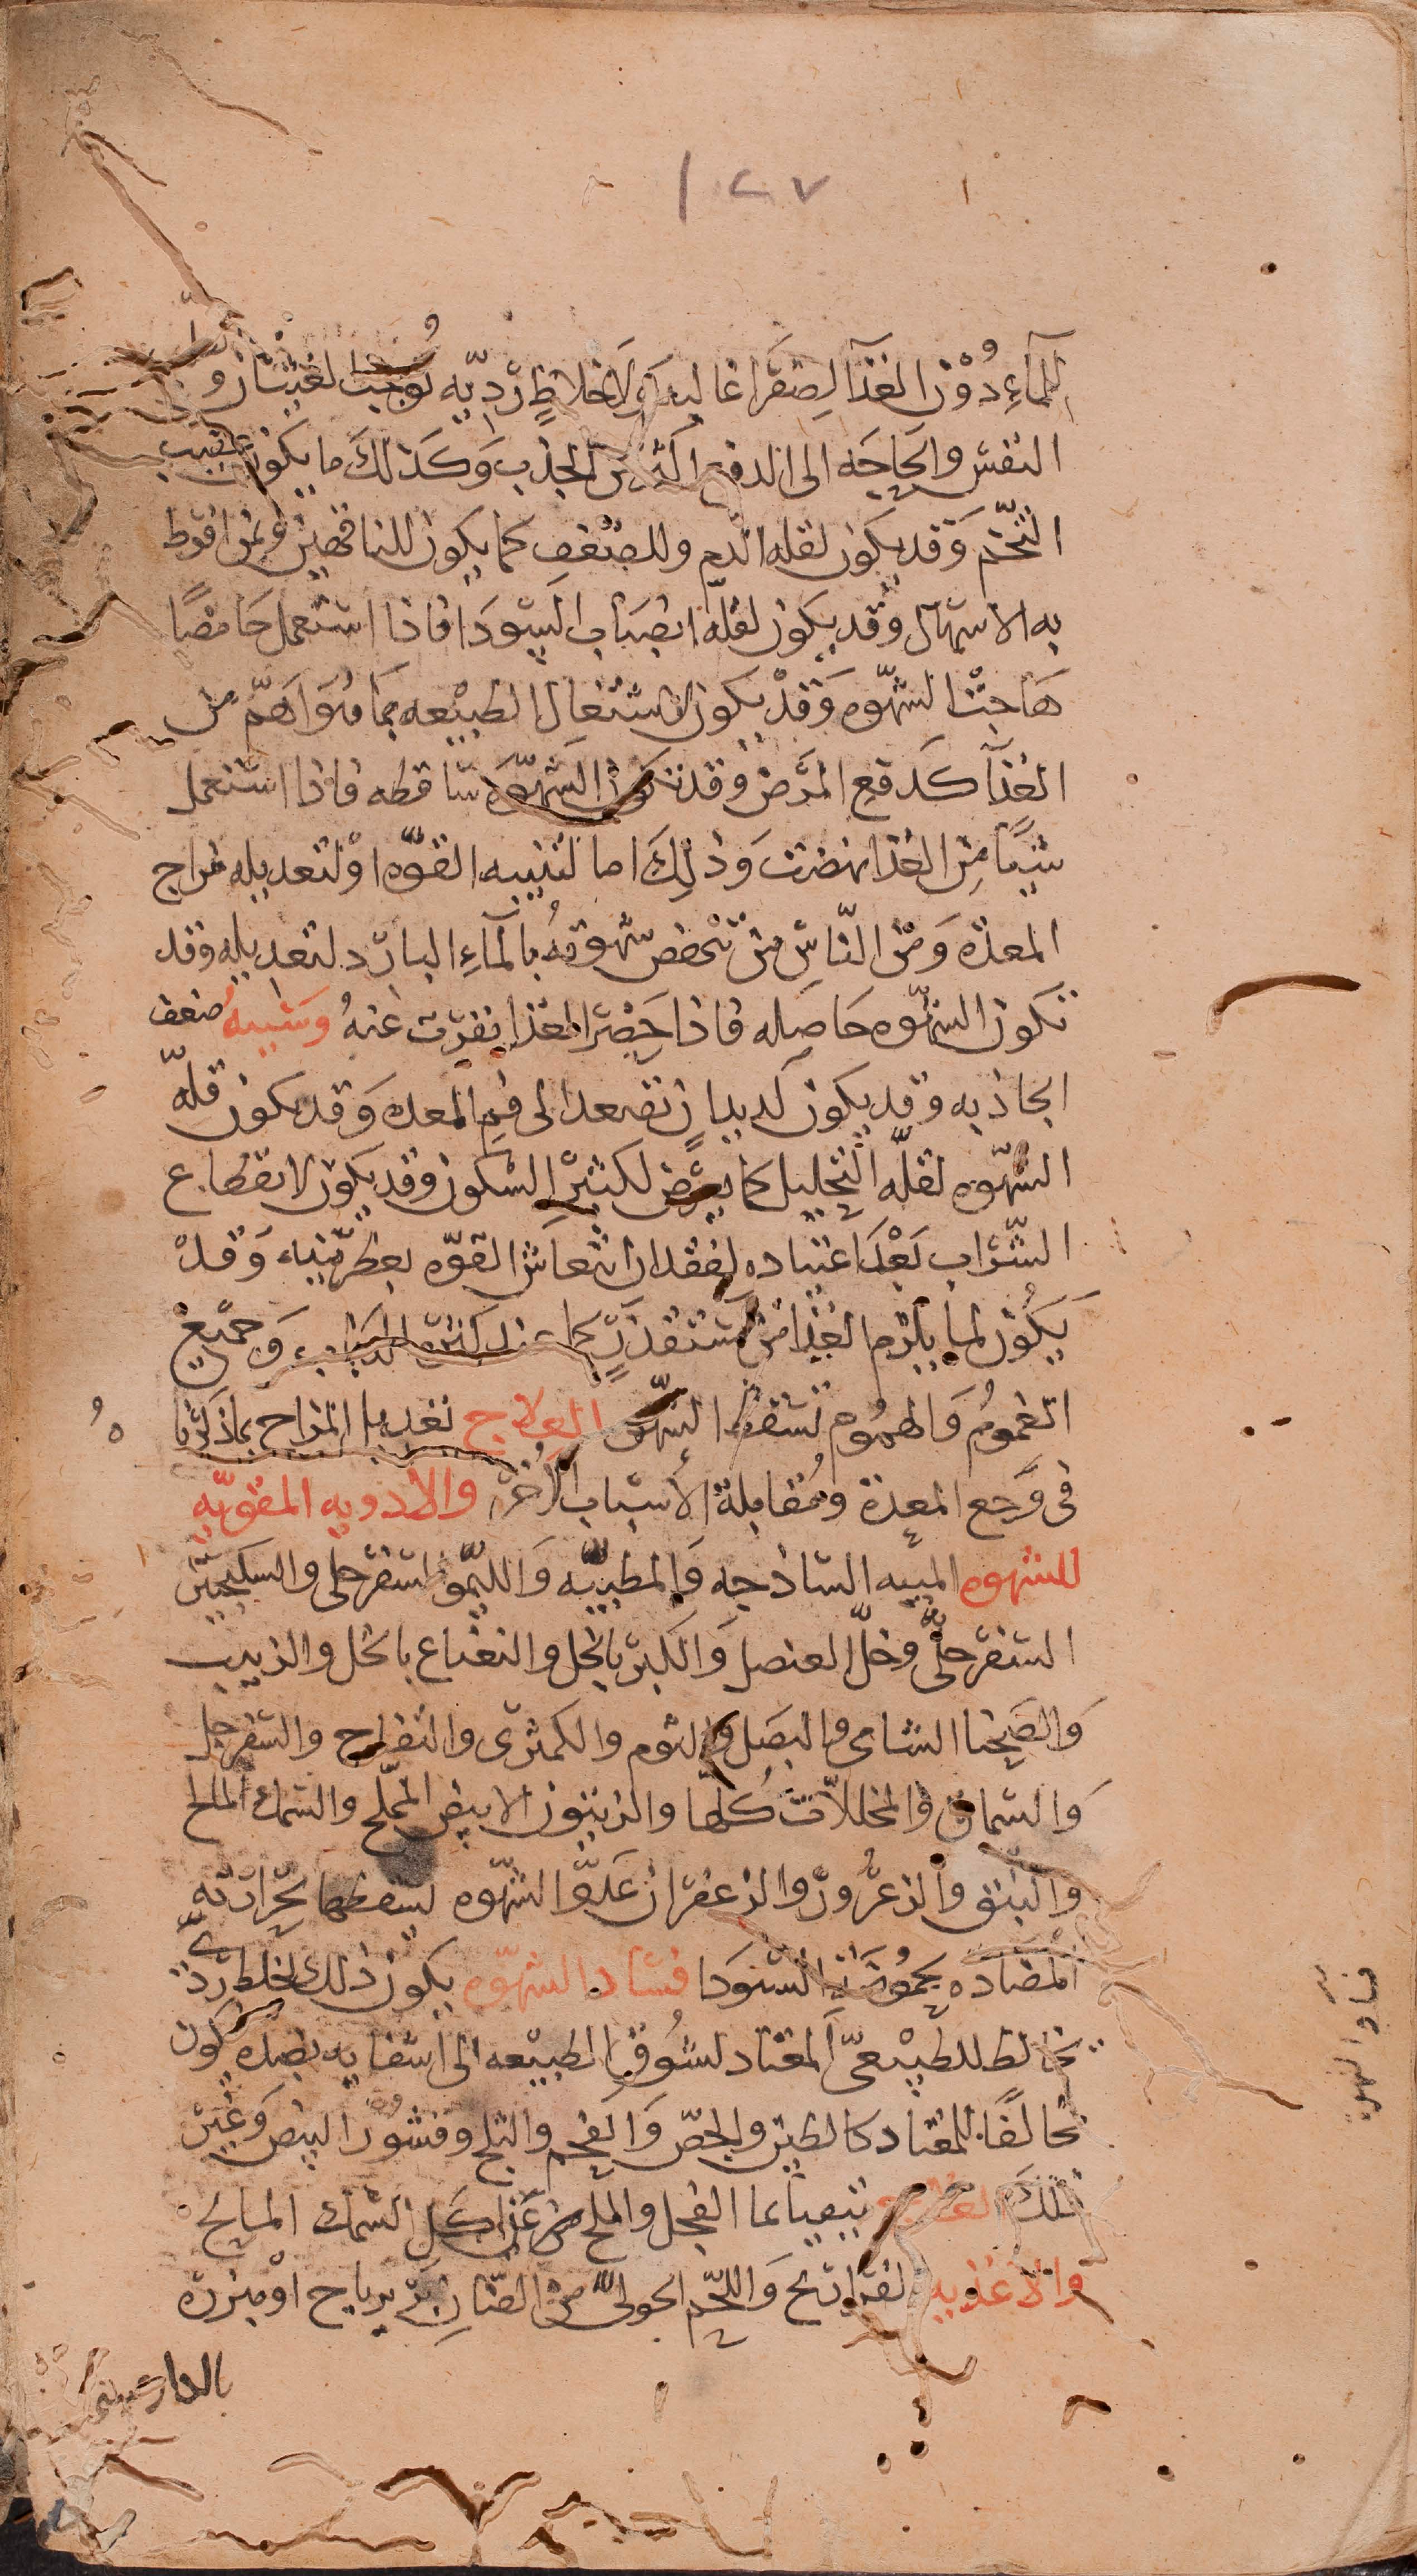 ١٢٧
للماء دون الغذا لصفرا غالبه ولاخلاط رديه توجب لغثيان و
النفس والحاجه الى الدفع اكثر من الجذب وكذلك ما يكون عقيب
التخم وقد يكون لقله الدم وللضعف كما يكون للناقهين ولمن افرط
به الاسهال وقد يكون لقله انصباب السودا فاذا استعمل حامضا
هاجت الشهوه وقد يكون لاشتغال الطبيعه بما هو اهم من
الغذا كدفع المرض وقد تكون الشهوه ساقطه فاذا استعمل
شيا من الغذا نهضت وذلك اما لتنبيه القوه او لتعديله مزاج
المعده ومن الناس من تنهض شهوته بالماء البارد لتعديله وقد
تكون الشهوه حاصله فاذا حضر الغذا نفرت عنه وسببه ضعف
الجاذبه وقد يكون لديدان تصعد الى فم المعده وقد يكون قله
الشهوه لقله التحليل كما يعرض لكثير السكون وقد يكون لانقطاع
الشراب بعد اعتياده لفقدان انتعاش القوه بعطريته وقد
يكون لما يلزم الغذا من مستقذر كما عند كثره الذباب وجميع
الغموم والهموم تسقط الشهوه العلاج تعديل المزاج بما ذكرنا
فى وجع المعدة ومقابلة الاسباب الاخر والادويه المقويه
للشهوه الميبه الساذجه والمطيبه والليمو السفرجلى والسكنجبين
السفرجلى وخل العنصل والكبر بالخل والنعناع بالخل والزبيب
والصحنا الشامى والبصل والثوم والكمثرى والتفاح والسفرجل
والسماق والمخللات كلها والزيتون الابيض المملح والسمك المالح
والنبق والزعرور والزعفران عدو الشهوه يسقطها بحرارته
المضاده لحموضة السودا فساد الشهوه يكون ذلك لخلط ردى
مخالط للطبيعى المعتاد لشوق الطبيعه الى اشفايه بضده يكون
مخالفا للمعتاد كالطين والجص والفحم والثلج وقشور البيض وغير
ذلك العلاج تنقيه بما الفجل والملح من غدا كل السمك المالح
والاغذيه الفراريج واللحم الحولى من الضان زيرباج او مبزره
بالدارصينى
فساد الشهوه